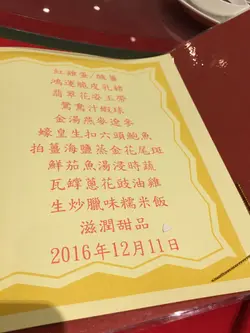 紅雞蛋/酸薑
鴻運脆皮乳豬
翡翠花姿玉帶
鴛鴦汁蝦球
金湯燕麥遼參
蠔皇生扣六頭鮑魚
拍薑海鹽蒸金花尾斑
鮮茄魚湯浸時蔬
瓦罉蔥花豉油雞
生炒臘味糯米飯
滋潤甜品
2016年12月11日